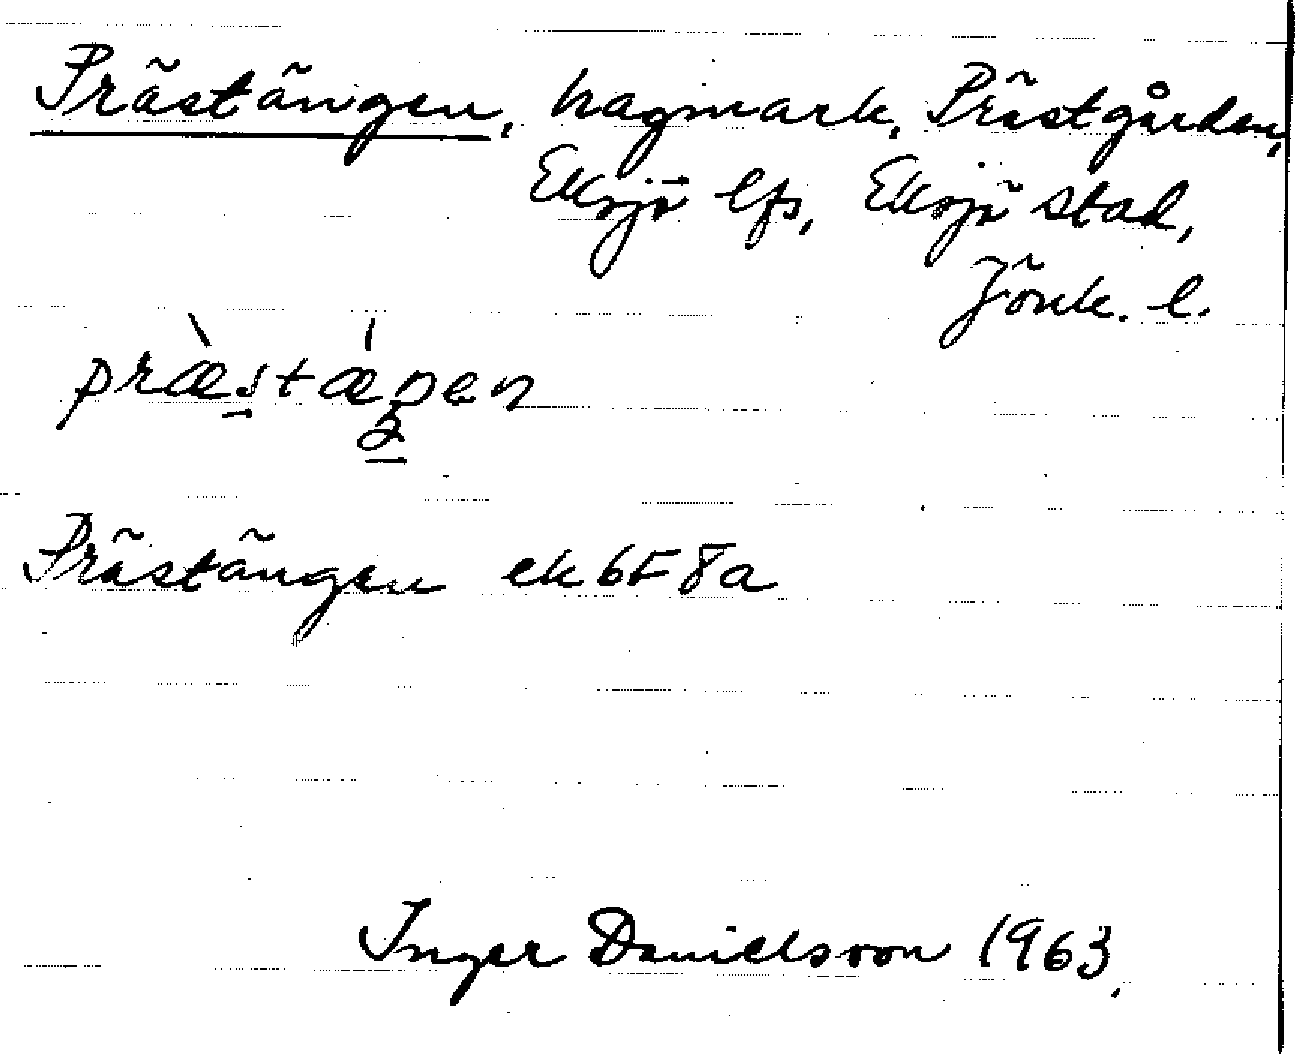 Prästängen, hagmark, Prästgården,
Eksjö lfs, Eksjö stad,
Jönk. l.
prǽstæŋen
Prästängen ek 6F 8a
Inger Danielsson 1963.